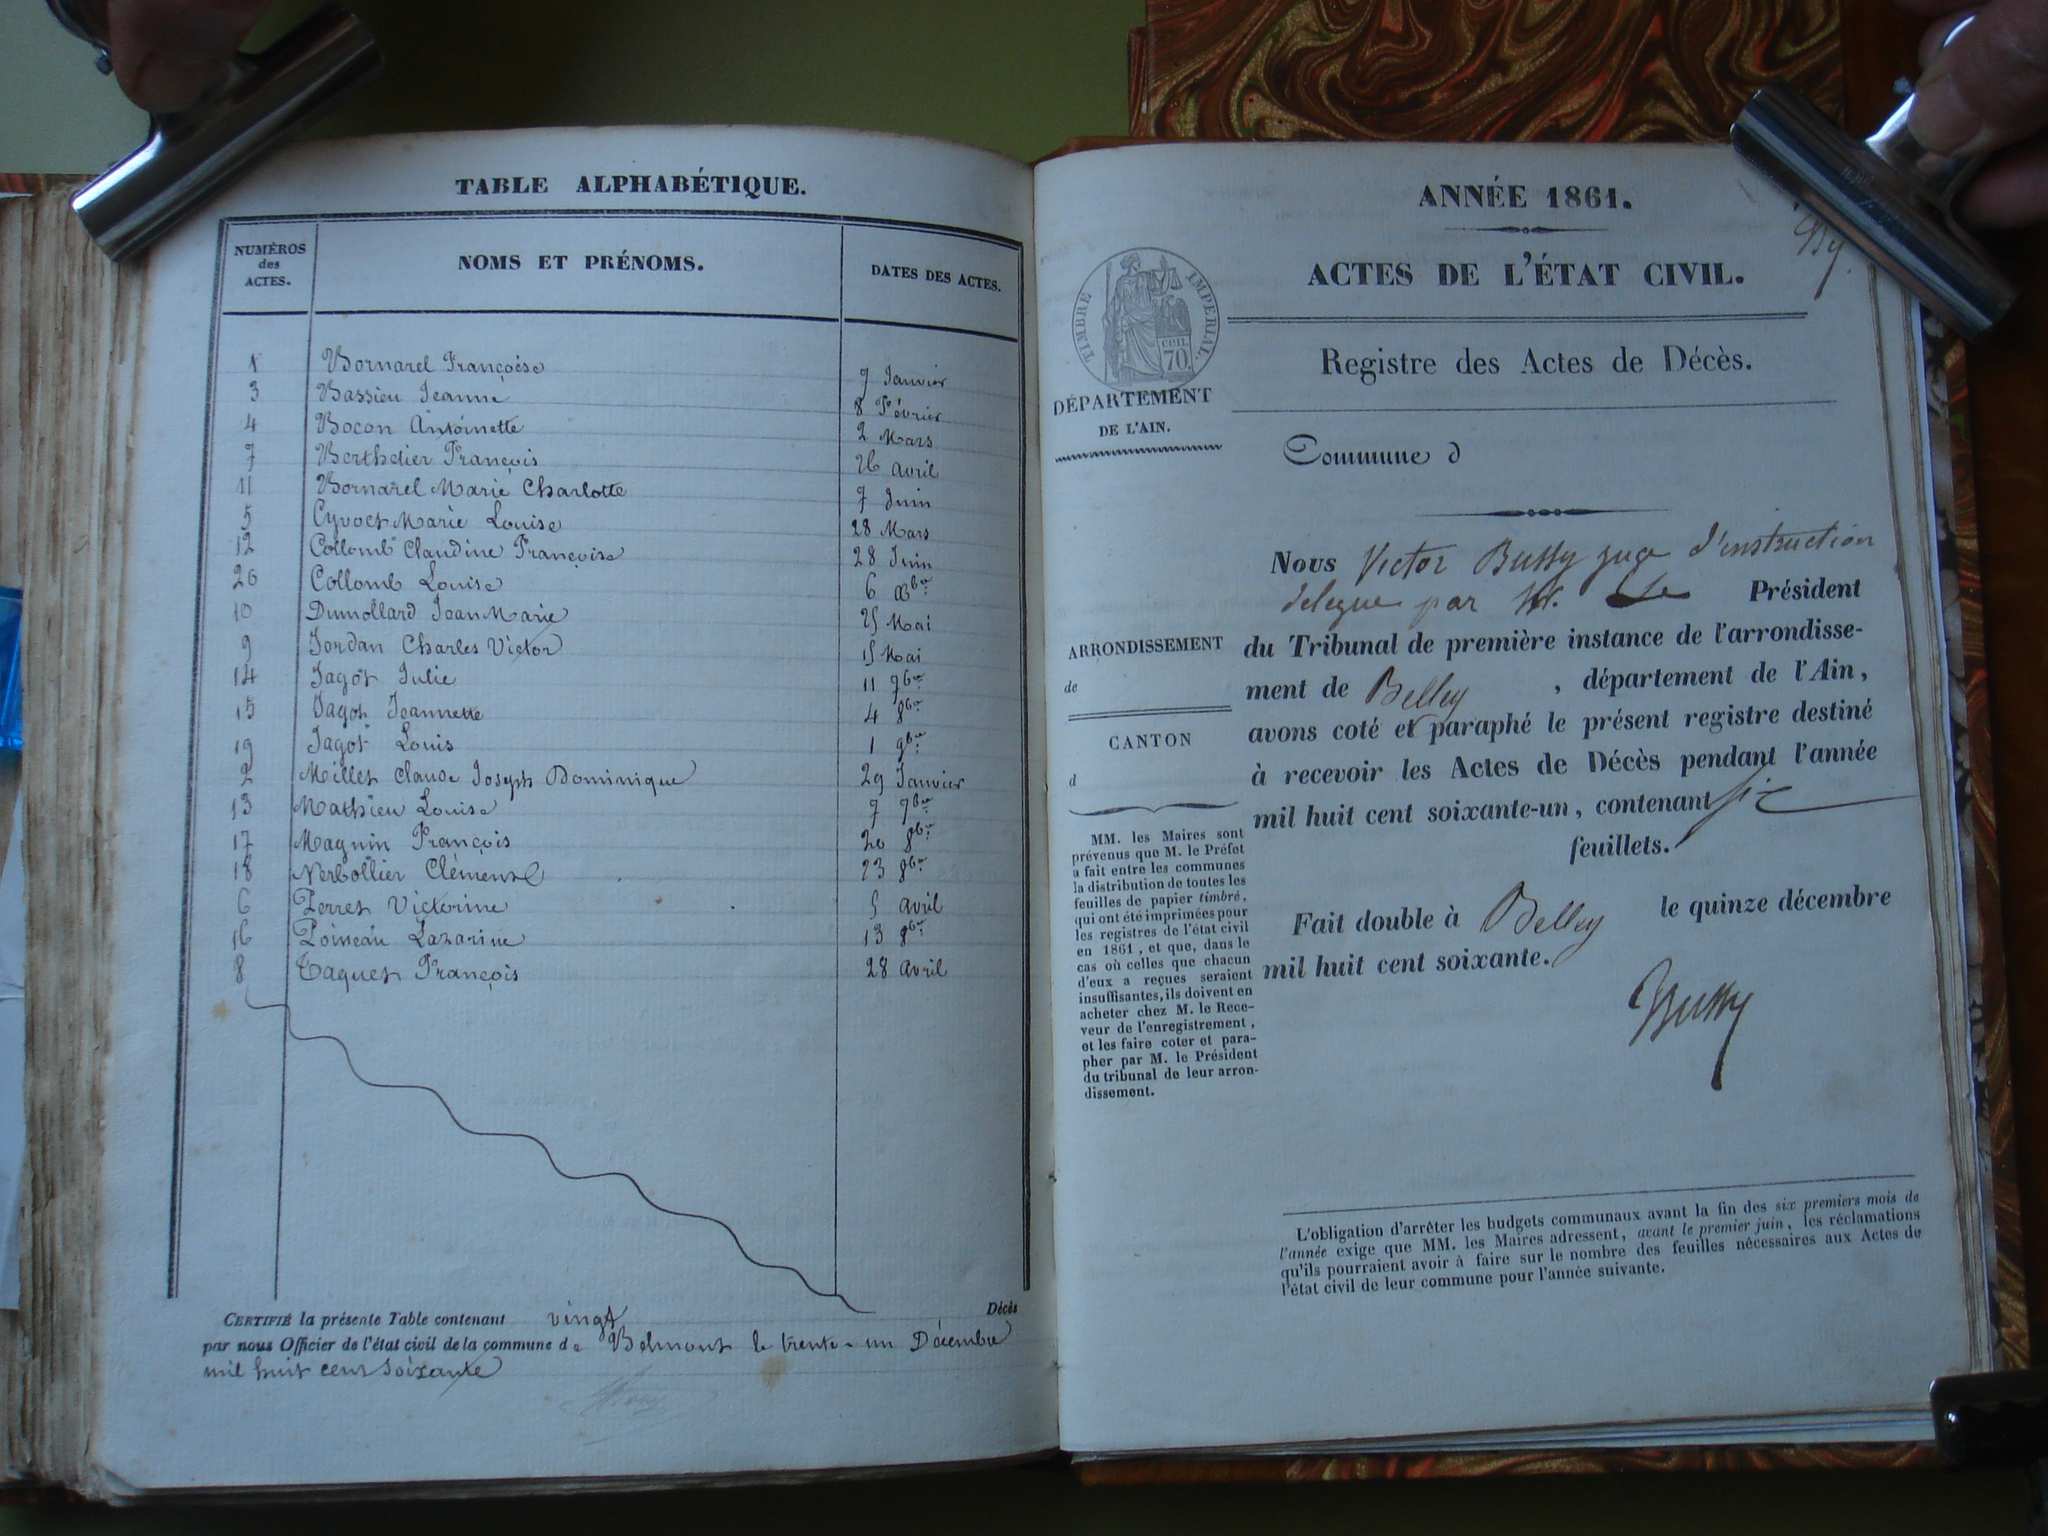 TABLE ALPHABÉTIQUE.
NUMÉROS des ACTES. NOMS ET PRÉNOMS. DATES DES ACTES.
1 Bornarel Françoise 7 Janvier
3 Bassieu Jeanne 8 Février
4 Bocon Antoinette 2 Mars
7 Berthelier François 26 avril
11 Bornarel Marie Charlotte 7 Juin
5 Cyvoct Marie Louise 28 Mars
12 Collomb Claudine Françoise 28 Juin
20 Collomb Louise 6 Xbre
10 Dumollard Jean Marie 25 Mai
9 Jordan Charles Victor 15 Mai
14 Jagot Julie 11 7bre
15 Jagot Jeannette 4 8bre
19 Jagot Louis 1 9bre
2 Millet Claude Joseph Dominique 29 Janvier
13 Mathieu Louise 7 7bre
17 Magnin François 20 8bre
18 Nerbollier Clément 23 8bre
6 Perret Victorine 5 avril
16 Poineau Lazarine 13 8bre
8 Taquet François 28 avril
CERTIFIÉ la présente Table contenant vingt Décès
par nous Officier de l'état civil de la commune de Belmont le trente-un Décembre
mil huit cent soixante
ANNÉE 1861.
ACTES DE L'ÉTAT CIVIL.
TIMBRE IMPERIAL.
CENT. 70.
Registre des Actes de Décès.
DÉPARTEMENT
DE L'AIN.
Commune d
Nous Victor Bussy juge d'instruction
delegue par M. Le Président
ARRONDISSEMENT
de
du Tribunal de première instance de l'arrondisse-
ment de Belley, département de l'Ain,
avons coté et paraphé le présent registre destiné
à recevoir les Actes de Décès pendant l'année
mil huit cent soixante-un, contenant six
feuillets.
CANTON
d
MM. les Maires sont
prévenus que M. le Préfet
a fait entre les communes
la distribution de toutes les
feuilles de papier timbré,
qui ont été imprimées pour
les registres de l'état civil
en 1861, et que, dans le
cas où celles que chacun
d'eux a reçues seraient
insuffisantes, ils doivent en
acheter chez M. le Rece-
veur de l'enregistrement,
et les faire coter et para-
pher par M. le Président
du tribunal de leur arron-
dissement.
Fait double à Belley le quinze décembre
mil huit cent soixante.
Bussy
L'obligation d'arrêter les budgets communaux avant la fin des six premiers mois de
l'année exige que MM. les Maires adressent, avant le premier juin, les réclamations
qu'ils pourraient avoir à faire sur le nombre des feuilles nécessaires aux Actes de
l'état civil de leur commune pour l'année suivante.